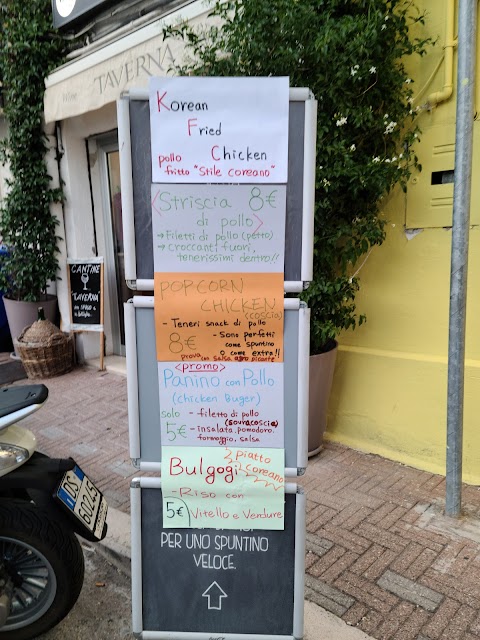 TAVERNA
Korean
Fried
Chicken
pollo
fritto "Stile coreano"
<Striscia 8€
di pollo>
→ Filetti di pollo (petto)
→ croccanti fuori,
tenerissimi dentro!!
POPCORN
CHICKEN
(coscia)
- Teneri snack di pollo
8€ - Sono perfetti
come spuntino
o come extra!!
prova con salsa agro piccante
<promo>
Panino con Pollo
(chicken Buger)
solo - filetto di pollo
(sovracoscia)
5€ - insalata, pomodoro,
formaggio, salsa
Bulgogi piatto
coreano
- Riso con
5€ Vitello e Verdure
PER UNO SPUNTINO
VELOCE.
CANTINE
"TAVERNA"